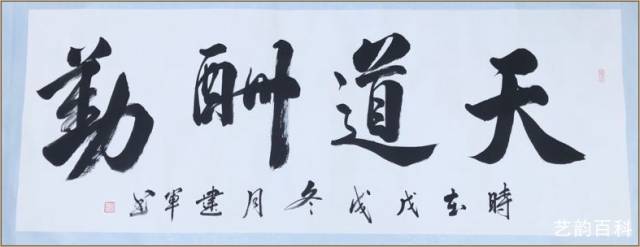 天道酬勤
時在戊戌冬月建軍书
艺韵百科